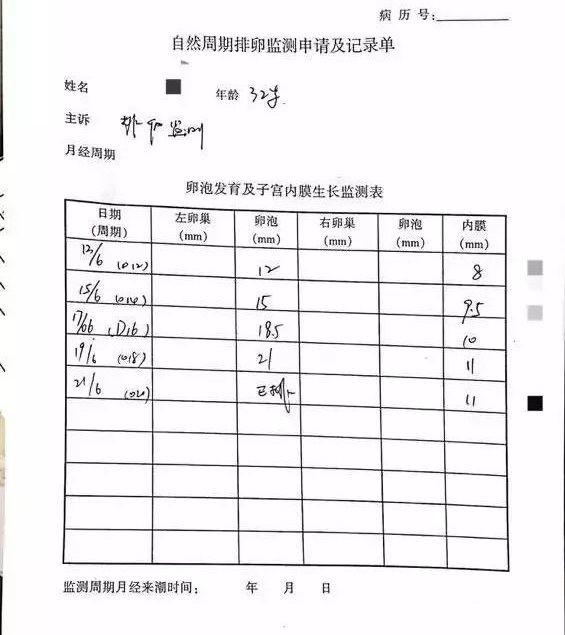 病 历 号:
自然周期排卵监测申请及记录单
姓名
年龄 32岁
主诉 排卵监测
月经周期
卵泡发育及子宫内膜生长监测表
日期 (周期) 左卵巢 (mm) 卵泡 (mm) 右卵巢 (mm) 卵泡 (mm) 内膜 (mm)
13/6 (D12) 12 8
15/6 (D14) 15 9.5
(D16) 18.5 10
19/6 (D18) 21 11
21/6 (D20) 已排 11
监测周期月经来潮时间: 年 月 日